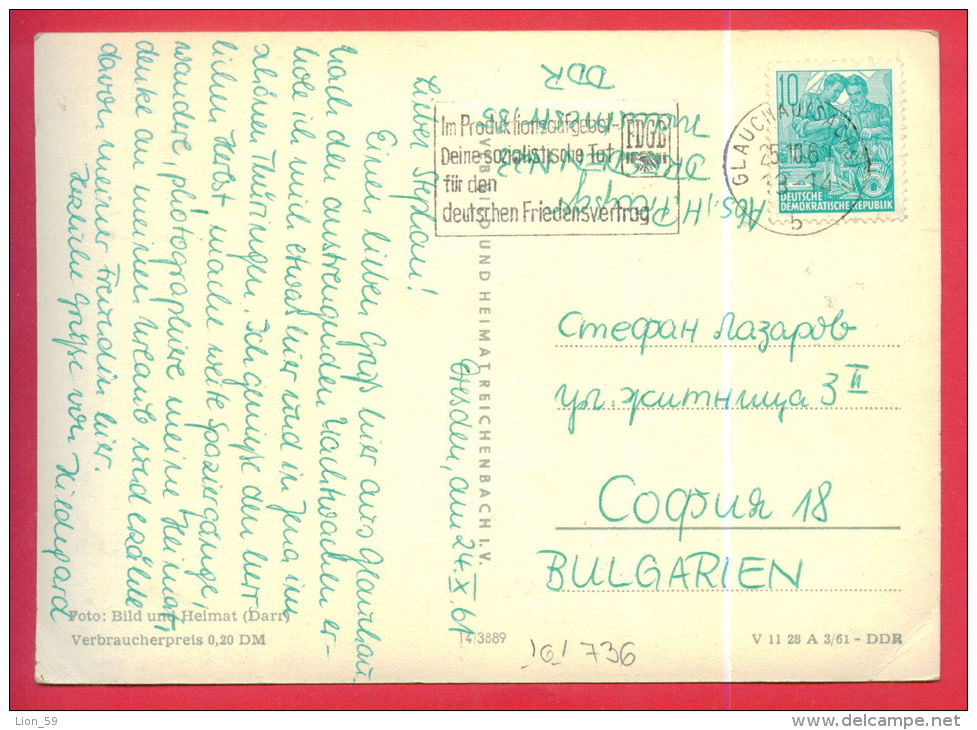 Lieber Stephan!
Einen lieben Gruß hier aus Glauchau.
Nach den anstrengenden Nachtwachen er-
hole ich mich etwas hier und in Jena im
schönen Thüringen. Ich genieße den herr-
lichen Herbst mache weite Spaziergänge,
wandere, photographiere meine Heimat,
denke an meinen Urlaub und erzähle
davon meiner Freundin hier.
Herzliche Grüße von Hildegard
Dresden, am 24.X.61
VEB BILD UND HEIMAT REICHENBACH I. V.
Abs. H.
DRESDEN
DDR
Im Produktionsaufgebot-
Deine sozialistische Tat
für den
deutschen Friedensvertrag
FDGB
GLAUCHAU (SACHS)
25.10.6
b
10
DEUTSCHE
DEMOKRATISCHE REPUBLIK
Стефан Лазаров
ул. житница 3 II
София 18
BULGARIEN
Foto: Bild und Heimat (Darr)
Verbraucherpreis 0,20 DM
14/3889
V 11 28 A 3/61 - DDR
736
Lion_59
www.delcampe.net